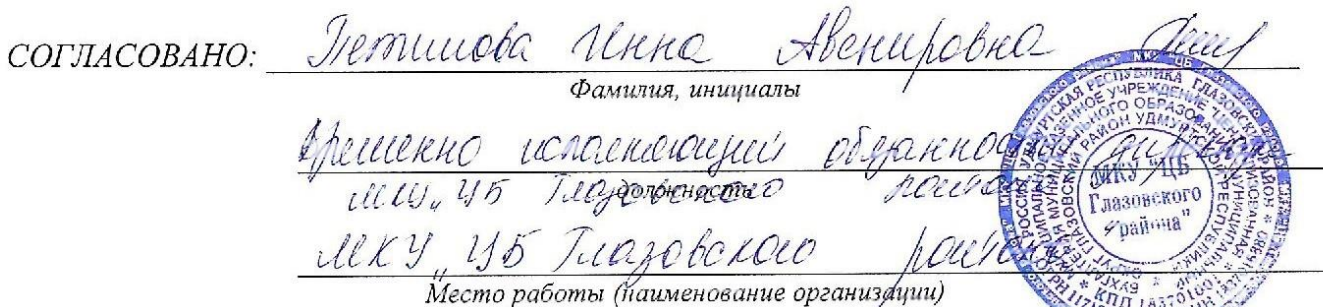 СОГЛАСОВАНО: Петшова Инна Авенировна
Фамилия, инициалы
Временно исполняющий обязанности директора
должность
МКУ „ЦБ Глазовского района
МКУ „ЦБ Глазовского района
Место работы (наименование организации)
МКУ "ЦБ
Глазовского
района"